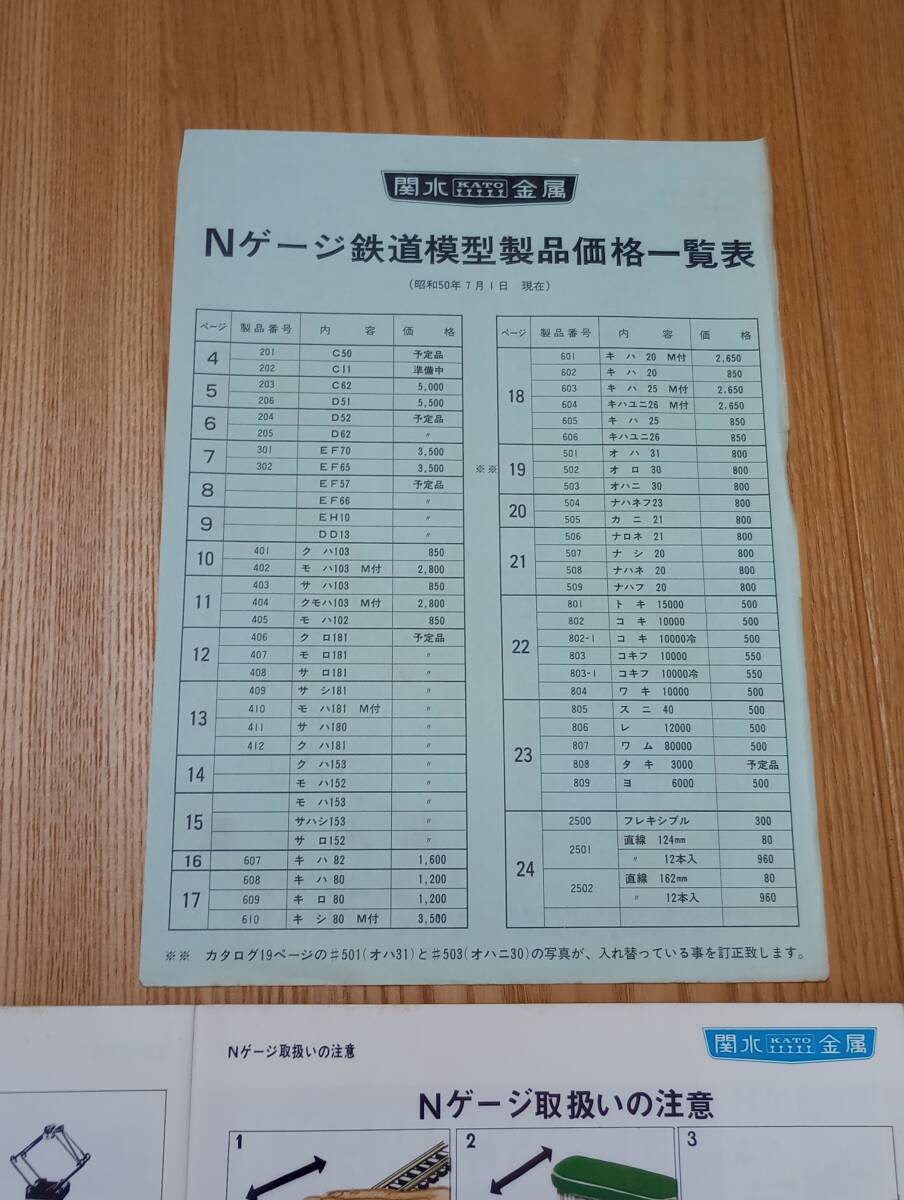 関水 KATO 金属
Nゲージ鉄道模型製品価格一覧表
(昭和50年7月1日 現在)
ページ 製品番号 内容 価格
4 201 C50 予定品
202 C11 準備中
5 203 C62 5,000
206 D51 5,500
6 204 D52 予定品
205 D62 〃
7 301 EF70 3,500
302 EF65 3,500
8 EF57 予定品
EF66 〃
9 EH10 〃
DD13 〃
10 401 クハ103 850
402 モハ103 M付 2,800
11 403 サハ103 850
404 クモハ103 M付 2,800
405 モハ102 850
12 406 クロ181 予定品
407 モロ181 〃
408 サロ181 〃
13 409 サシ181 〃
410 モハ181 M付 〃
411 サハ180 〃
412 クハ181 〃
14 クハ153 〃
モハ152 〃
15 モハ153 〃
サハシ153 〃
サロ152 〃
16 607 キハ82 1,600
17 608 キハ80 1,200
609 キロ80 1,200
610 キシ80 M付 3,500
ページ 製品番号 内容 価格
18 601 キハ20 M付 2,650
602 キハ20 850
603 キハ25 M付 2,650
604 キハユニ26 M付 2,650
605 キハ25 850
606 キハユニ26 850
※※ 19 501 オハ31 800
502 オロ30 800
503 オハニ30 800
20 504 ナハネフ23 800
505 カニ21 800
21 506 ナロネ21 800
507 ナシ20 800
508 ナハネ20 800
509 ナハフ20 800
22 801 トキ15000 500
802 コキ10000 500
802-1 コキ10000冷 500
803 コキフ10000 550
803-1 コキフ10000冷 550
804 ワキ10000 500
23 805 スニ40 500
806 レ12000 500
807 ワム80000 500
808 タキ3000 予定品
809 ヨ6000 500
24 2500 フレキシブル 300
2501 直線 124mm 80
〃 12本入 960
2502 直線 162mm 80
〃 12本入 960
※※ カタログ19ページの#501(オハ31)と#503(オハニ30)の写真が、入れ替っている事を訂正致します。
Nゲージ取扱いの注意
関水 KATO 金属
Nゲージ取扱いの注意
1 2 3